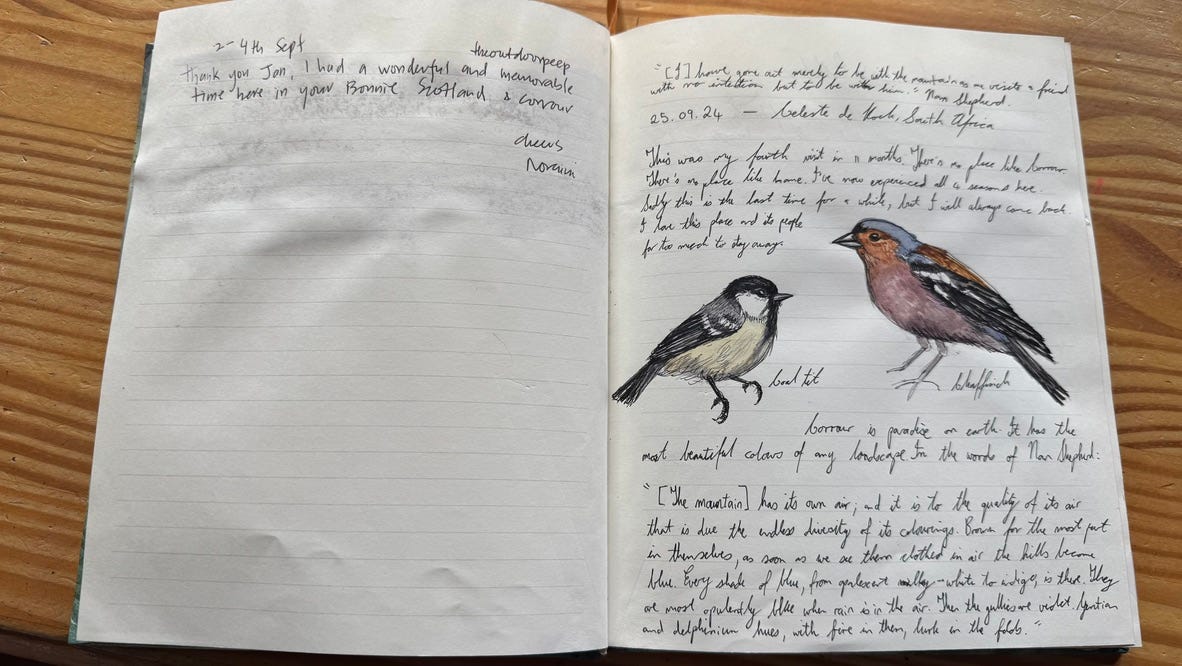 2-4th Sept theoutdoorpeep
thank you Jan, I had a wonderful and memorable
time here in your Bonnie Scotland & corrour
cheers
"[I] have gone out merely to be with the mountain as one visits a friend
with no intention but to be with him." Nan Shepherd.
25.09.24 — Celeste de Kock, South Africa
This was my fourth visit in 11 months. There's no place like Corrour.
There's no place like home. I've now experienced all 4 seasons here.
Sadly this is the last time for a while, but I will always come back.
I love this place and its people
far too much to stay away.
Coal tit
Chaffinch
Corrour is paradise on earth. It has the
most beautiful colours of any landscape. In the words of Nan Shepherd:
"[The mountain] has its own air; and it is to the quality of its air
that is due the endless diversity of its colourings. Brown for the most part
in themselves, as soon as we see them clothed in air the hills become
blue. Every shade of blue, from opalescent milky-white to indigo, is there. They
are most opulently blue when rain is in the air. Then the gullies are violet. Gentian
and delphinium hues, with fire in them, lurk in the folds."